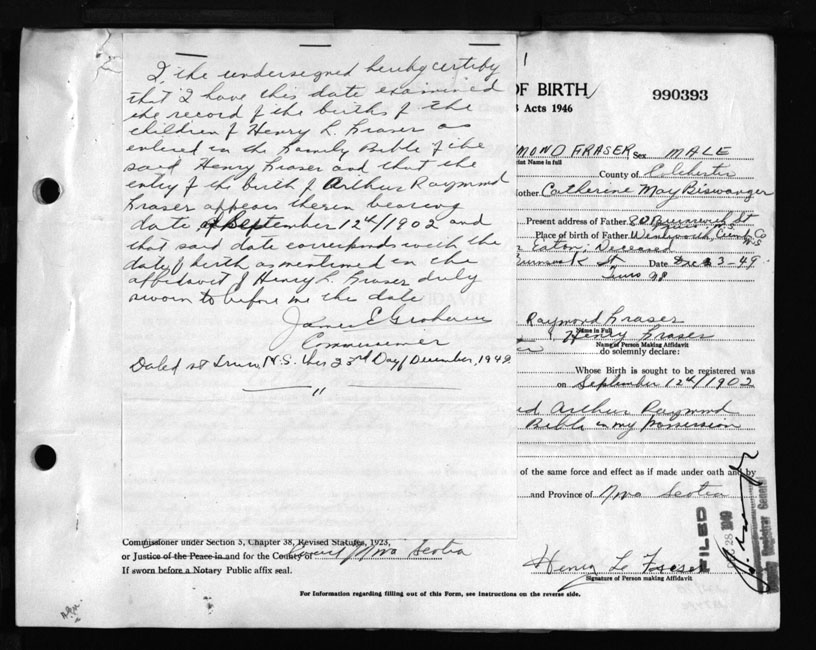 I, the undersigned hereby certify
that I have this date examined
the record of the births of the
children of Henry L. Fraser as
entered in the Family Bible of the
said Henry Fraser and that the
entry of the birth of Arthur Raymond
Fraser appears therein bearing
date of September 12th/1902 and
that said date corresponds with the
date of birth as mentioned in the
affidavit of Henry L. Fraser duly
sworn to before me this date
James E Graham
Commissioner
Dated at Truro, N.S. this 23rd Day of December, 1949
"
Commissioner under Section 5, Chapter 38, Revised Statutes, 1923,
or Justice of the Peace in and for the County of Nova Scotia
If sworn before a Notary Public affix seal.
OF BIRTH
990393
Acts 1946
MOND FRASER, Sex MALE
int Name in full
County of Colchester
other Catherine May Biswanger
Present address of Father 80 Brunswick St
Truro N.S.
Place of birth of Father Wentworth, Cumb. Co
N.S.
Eaton; Deceased
runswick St Date Dec 23-49
Truro NS
Raymond Fraser
Name in Full
Henry Fraser
Name of Person Making Affidavit
do solemnly declare:
Whose Birth is sought to be registered was
on September 12th/1902
Arthur Raymond
Bible in my Possession
of the same force and effect as if made under oath and by
and Province of Nova Scotia
FILED
28 1949
Registrar General
Henry L Fraser
Signature of Person making Affidavit
For Information regarding filling out of this Form, see instructions on the reverse side.